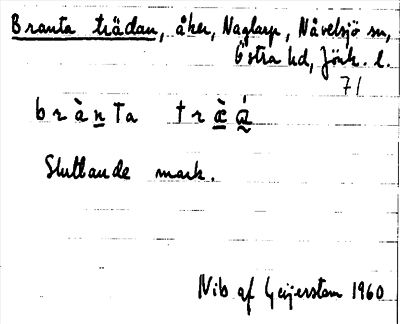 Branta trädan, åker, Naglarp, Nävelsjö sn,
Östra hd, Jönk. l.
71
b r à n Ta t r æ̀ á̰
Sluttande mark.
Nib af Geijerstam 1960